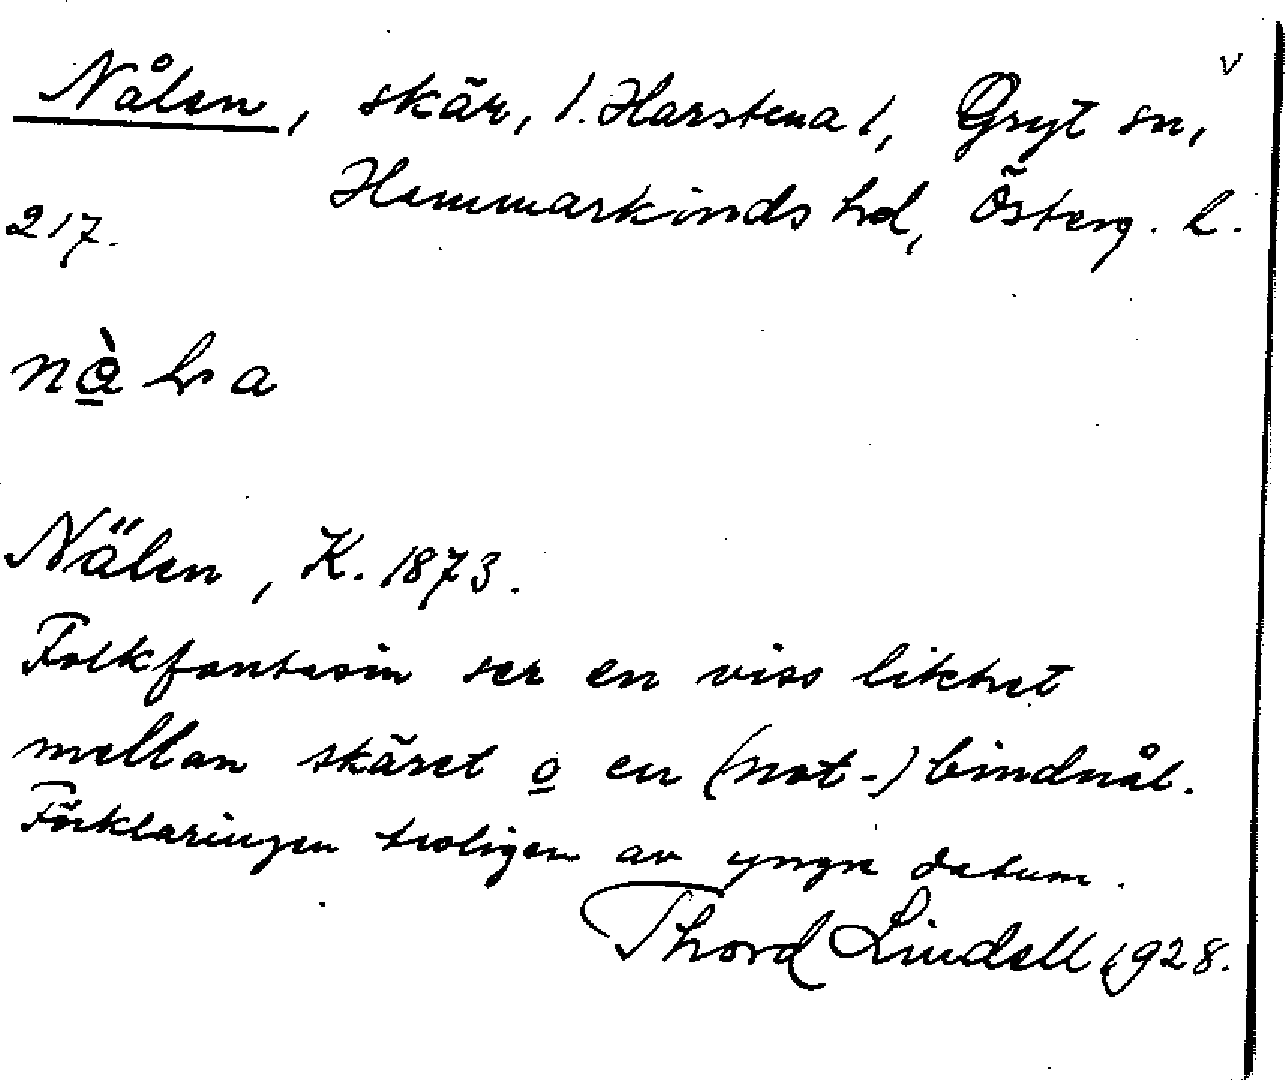 Nålen, skär, 1. Harstena 1, Gryt sn,
Hammarkinds hd, Österg. l.
217.
Nälen, K. 1873.
Folkfantasin ser en viss likhet
mellan skäret o en (not-) bindnål.
Förklaringen troligen av yngre datum.
Thord Lindell 1928.
v